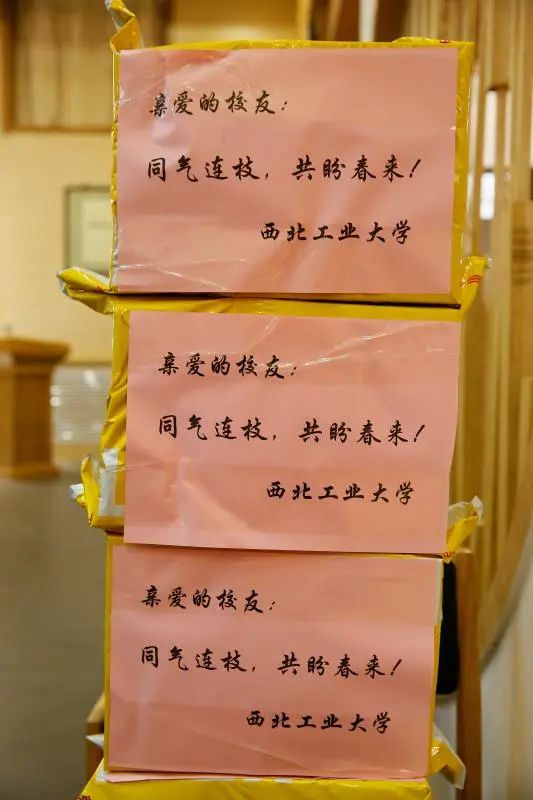 亲爱的校友：
同气连枝，共盼春来！
西北工业大学
亲爱的校友：
同气连枝，共盼春来！
西北工业大学
亲爱的校友：
同气连枝，共盼春来！
西北工业大学